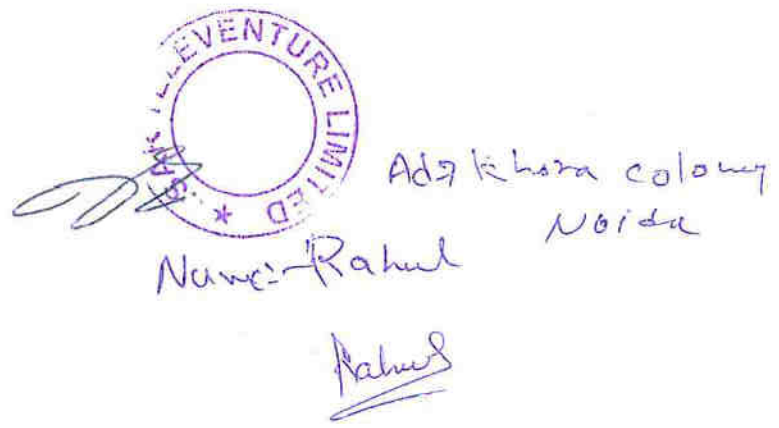 SAR TELEVENTURE LIMITED *
Add Khora colony
Noida
Name:- Rahul
Rahul